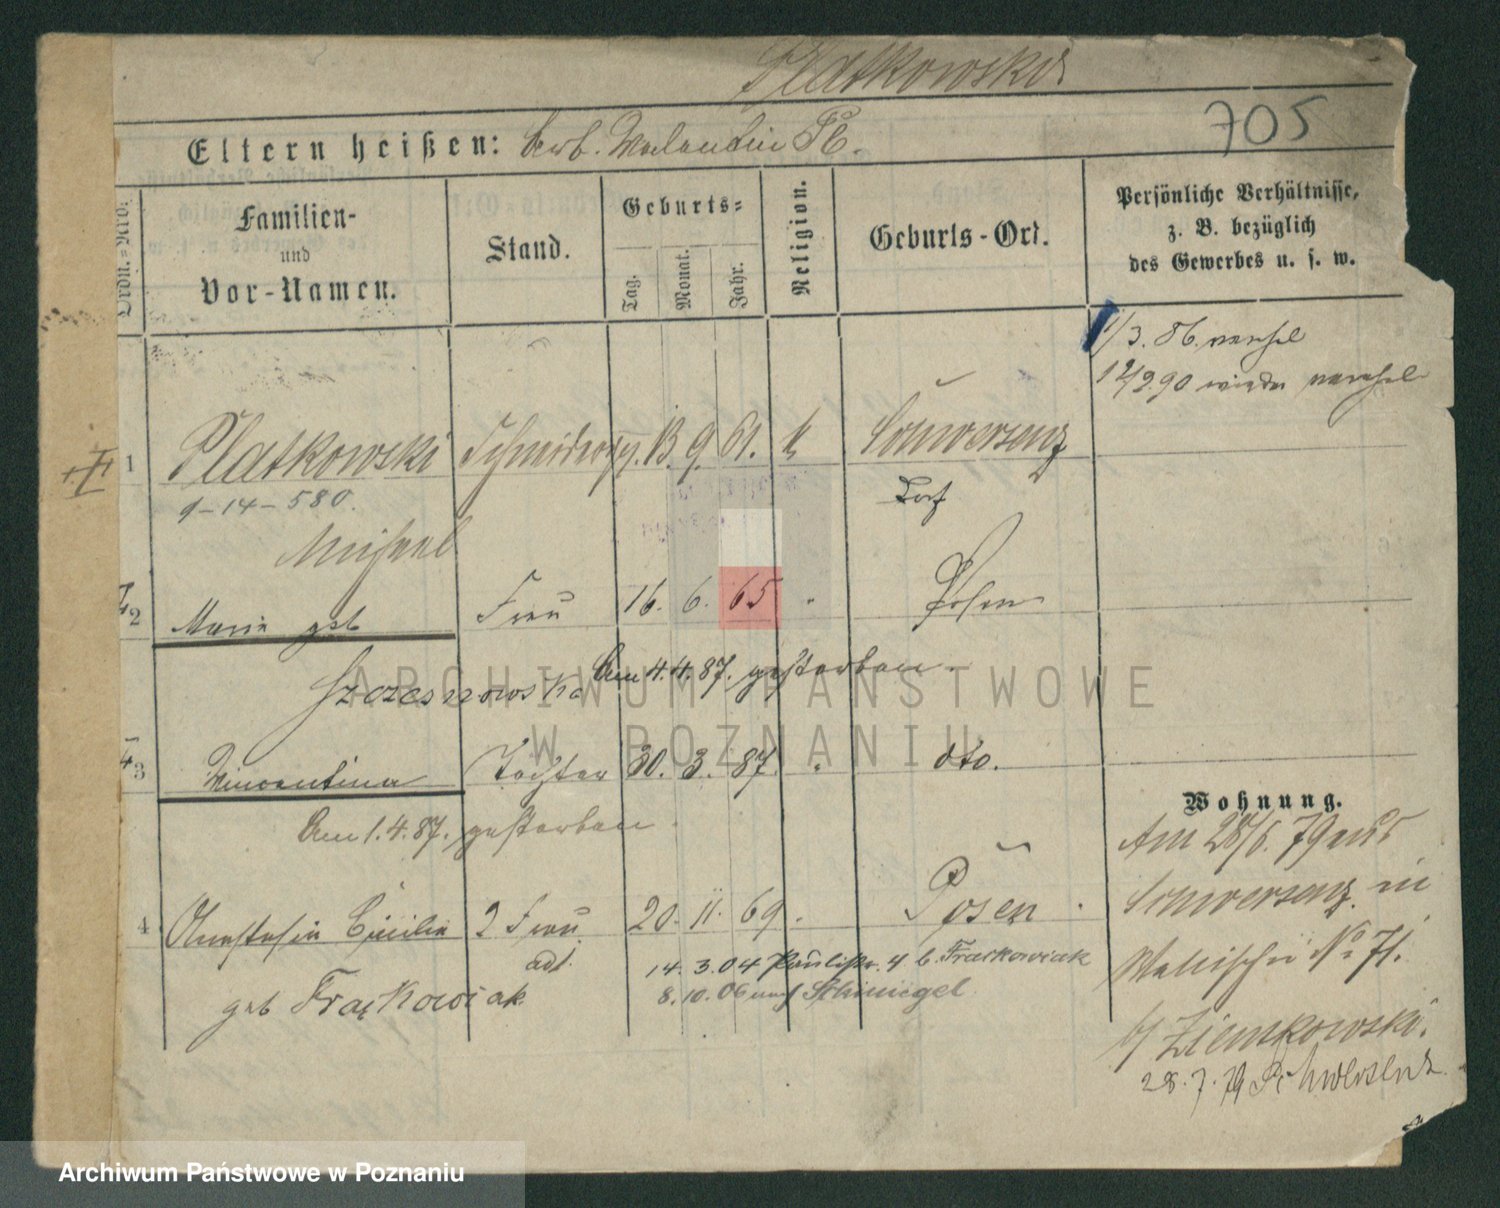 Platkowski
705
Eltern heißen: Arb. Valentin Pl.
Ordn.=Nro.
Familien-
und
Vor-Namen.
Stand.
Geburts=
Tag.
Monat.
Jahr.
Religion.
Geburts-Ort.
Persönliche Verhältnisse,
z. B. bezüglich
des Gewerbes u. s. w.
1/3. 86. verehel
12/2 90 wieder verehel
1 Platkowski Schneiderges. 13. 9. 61. k Schwersenz
9-14-580. Dorf
Michael
2 Marie geb Frau 16. 6. 65 " Posen
Szczesnowska Am 4.4.87. gestorben.
3 Vincentina Tochter 30. 3. 87. " dto.
Am 1.4.87. gestorben.
Wohnung.
Am 28/6. 79 aus
Schwersenz in
Wallischei No 71.
b/ Ziemkowski.
28.7.79 Schwersenz
4 Anastasia Cäcilie 2 Frau 20. 11. 69. " Posen
14. 3. 04 Paulistr. 4 b. Frackowiak
8. 10. 06 nach
geb Frąckowiak
ARCHIWUM PAŃSTWOWE
W POZNANIU
Archiwum Państwowe w Poznaniu